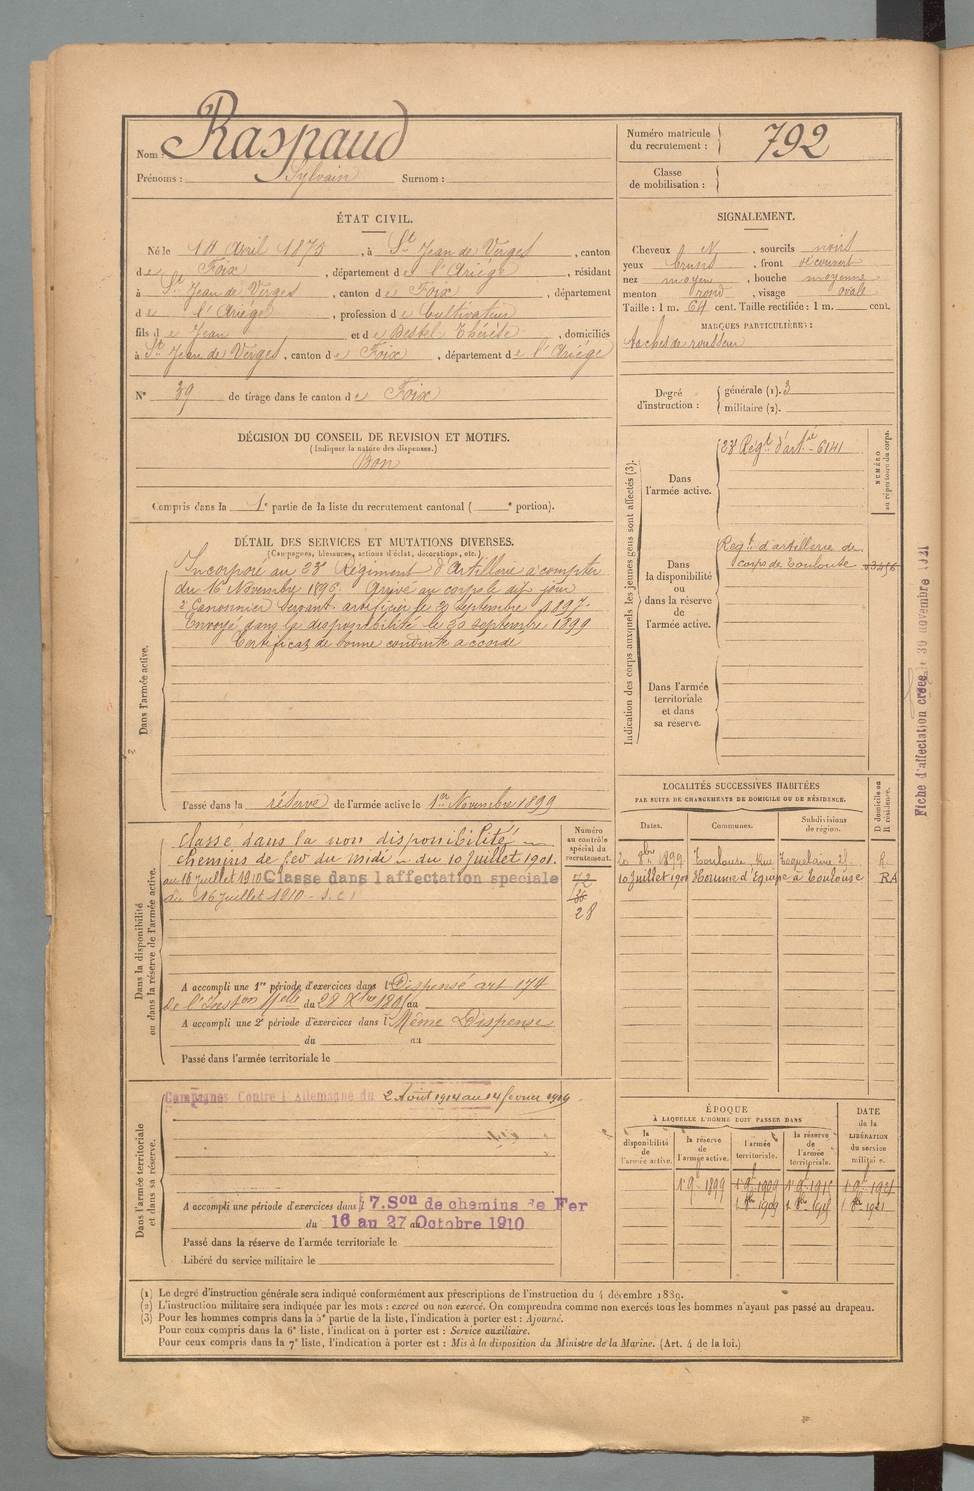 Nom : Raspaud
Prénoms : Sylvain Surnom :
Numéro matricule du recrutement : 792
Classe de mobilisation :
ÉTAT CIVIL.
Né le Avril 1875, à St Jean de Verges, canton
de Foix, département de l'Ariège, résidant
à St Jean de Verges, canton de Foix, département
de l'Ariège, profession de Cultivateur
fils de Jean et de Bestel Thérèse, domiciliés
à St Jean de Verges, canton de Foix, département de l'Ariège
N° 39 de tirage dans le canton de Foix
DÉCISION DU CONSEIL DE REVISION ET MOTIFS.
(Indiquer la nature des dispenses.)
Bon
Compris dans la 1e partie de la liste du recrutement cantonal ( e portion).
SIGNALEMENT.
Cheveux N, sourcils noirs
yeux bruns, front découvert
nez moyen, bouche moyenne
menton rond, visage ovale
Taille : 1 m. 64 cent. Taille rectifiée : 1 m. cent.
MARQUES PARTICULIÈRES :
taches de rousseur
Degré d'instruction : générale (1). 3
militaire (2).
DÉTAIL DES SERVICES ET MUTATIONS DIVERSES.
(Campagnes, blessures, actions d'éclat, décorations, etc.)
Dans l'armée active.
Incorporé au 23e Régiment d'Artillerie à compter
du 16 Novembre 1896. Arrivé au corps le dit jour
2e Canonnier Servant artificier le 23 Septembre 1897.
Envoyé dans la disponibilité le 23 Septembre 1899
Certificat de bonne conduite accordé
Passé dans la réserve de l'armée active le 1er Novembre 1899
Indication des corps auxquels les jeunes gens sont affectés (3).
NUMÉRO au répertoire du corps.
Dans l'armée active.
23e Régt d'artie - 6141
Dans la disponibilité ou dans la réserve de l'armée active.
Régt d'artillerie de
corps de Toulouse
Dans l'armée territoriale et dans sa réserve.
Fiche d'affectation créée le 30 novembre
Dans la disponibilité ou dans la réserve de l'armée active.
Numéro au contrôle spécial du recrutement.
Classé dans la non disponibilité
chemins de fer du Midi du 10 Juillet 1901.
au 16 Juillet 1910 Classe dans l'affectation spéciale
du 16 Juillet 1910 - S.C.
28
A accompli une 1re période d'exercices dans l Dispensé art 174
de l'Inston Melle du 28 Xbre au
A accompli une 2e période d'exercices dans l Même Dispense
du au
Passé dans l'armée territoriale le
LOCALITÉS SUCCESSIVES HABITÉES
PAR SUITE DE CHANGEMENTS DE DOMICILE OU DE RÉSIDENCE.
Dates. Communes. Subdivisions de région. D domicile ou R résidence.
20 8bre 1899 Toulouse, Rue R.
10 Juillet 1901 Homme d'Equipe à Toulouse RA
Dans l'armée territoriale et dans sa réserve.
Campagnes Contre l'Allemagne du 2 Août 1914 au 14 février 1919
A accompli une période d'exercices dans l 7. Son de chemins de Fer
du 16 au 27 Octobre 1910
Passé dans la réserve de l'armée territoriale le
Libéré du service militaire le
ÉPOQUE
À LAQUELLE L'HOMME DOIT PASSER DANS
la disponibilité de l'armée active. la réserve de l'armée active. l'armée territoriale. la réserve de l'armée territoriale. DATE de la LIBÉRATION du service militaire.
1er 9bre 1899 1er 9bre 1909 1er 9bre 1915 1er 9bre 1921
(1) Le degré d'instruction générale sera indiqué conformément aux prescriptions de l'instruction du 4 décembre 1889.
(2) L'instruction militaire sera indiquée par les mots : exercé ou non exercé. On comprendra comme non exercés tous les hommes n'ayant pas passé au drapeau.
(3) Pour les hommes compris dans la 5e partie de la liste, l'indication à porter est : Ajourné.
Pour ceux compris dans la 6e liste, l'indication à porter est : Service auxiliaire.
Pour ceux compris dans la 7e liste, l'indication à porter est : Mis à la disposition du Ministre de la Marine. (Art. 4 de la loi.)